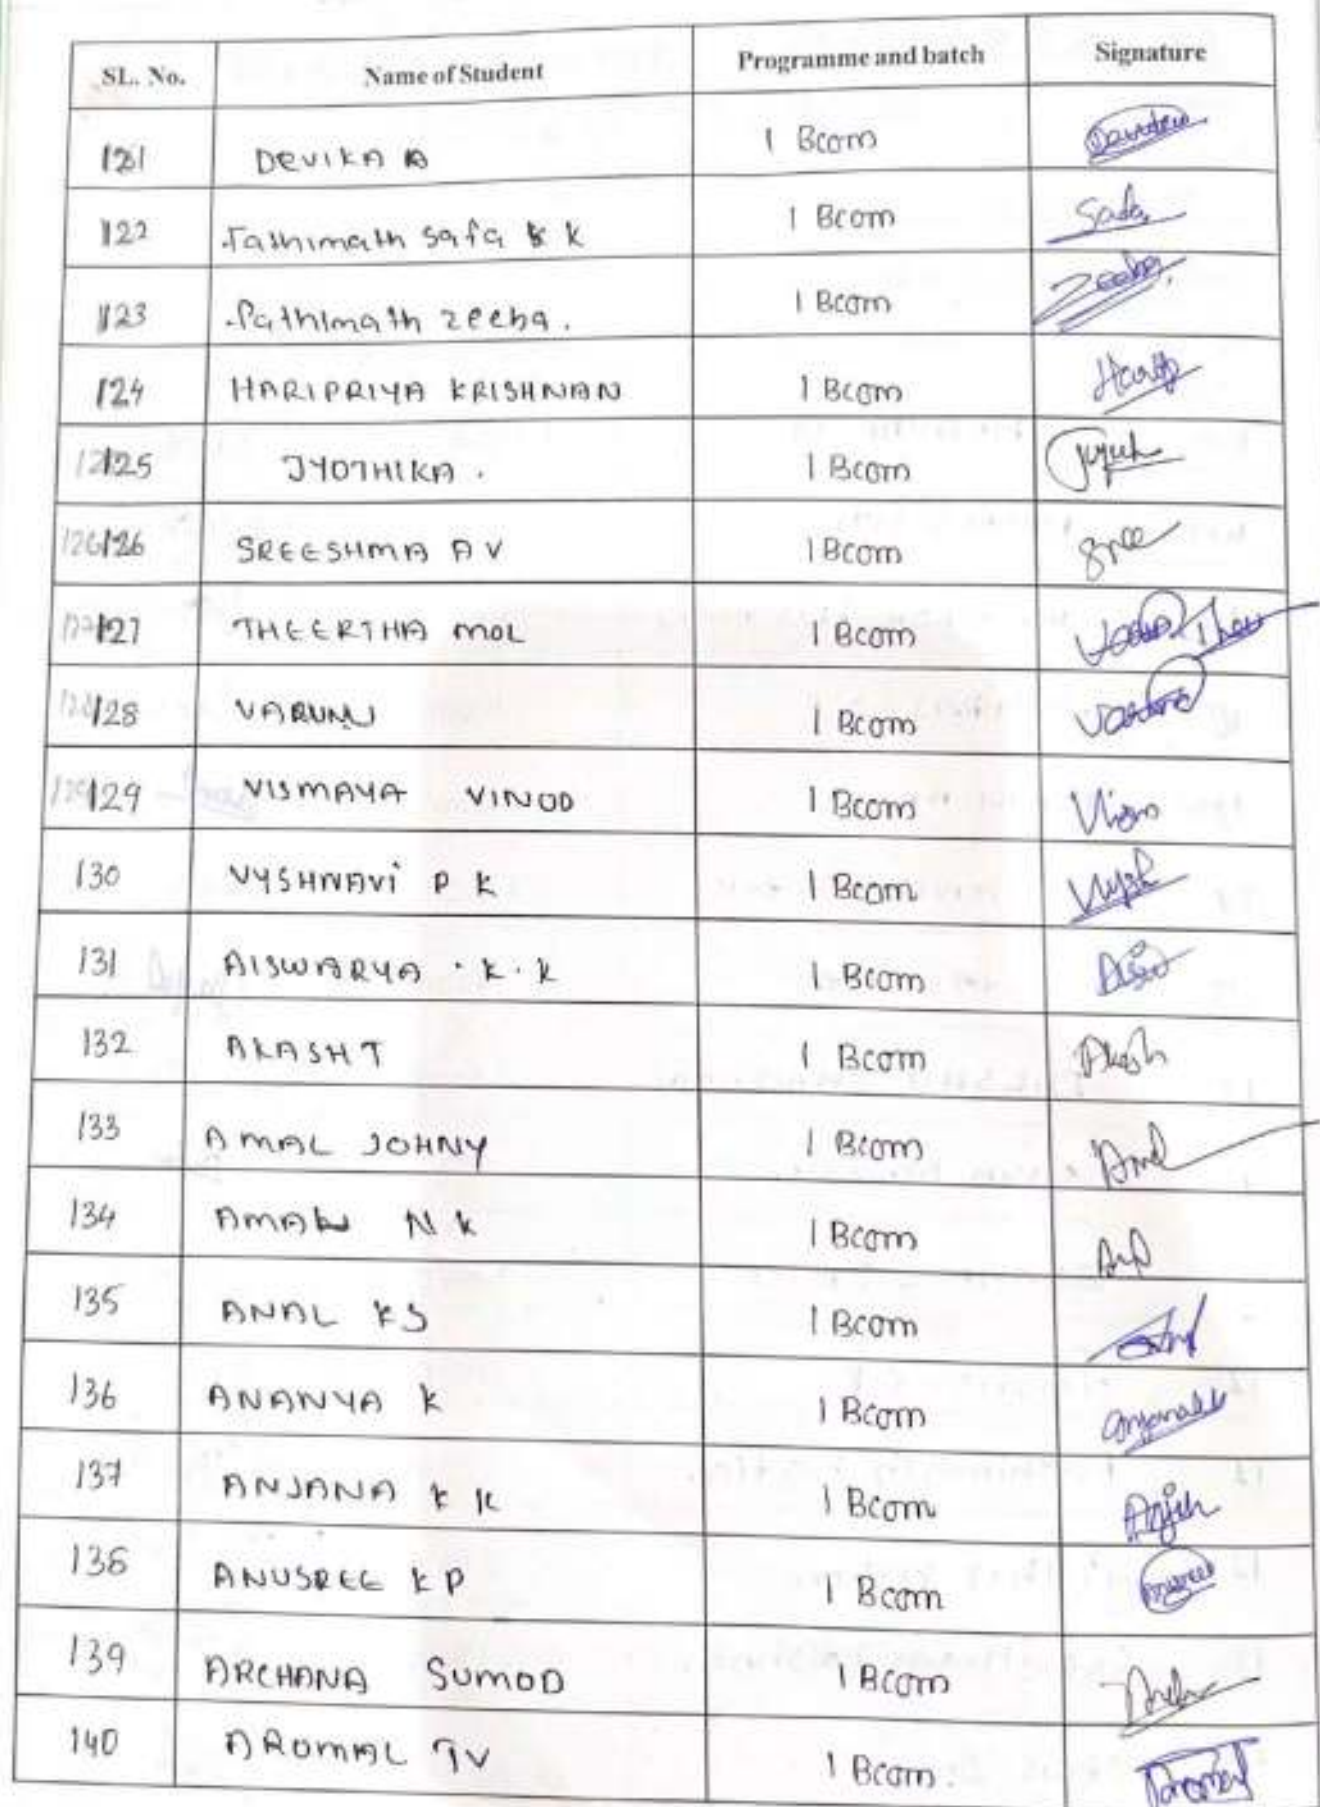 SL. No. Name of Student Programme and batch Signature
121 DEVIKA A 1 Bcom
122 Fathimath Safa K K 1 Bcom Safa
123 Fathimath zeeba. 1 Bcom Zeeba
124 HARIPRIYA KRISHNAN 1 Bcom
125 JYOTHIKA . 1 Bcom
126 SREESHMA A V 1 Bcom Sree
127 THEERTHA MOL 1 Bcom
128 VARUNI 1 Bcom
129 VISMAYA VINOD 1 Bcom
130 VYSHNAVi P K 1 Bcom
131 AISWARYA . K . K 1 Bcom
132 AKASH T 1 Bcom Akash
133 AMAL JOHNY 1 Bcom
134 AMAN N K 1 Bcom
135 ANAL KS 1 Bcom
136 ANANYA K 1 Bcom
137 ANJANA K K 1 Bcom
138 ANUSREE K P 1 Bcom
139 ARCHANA SUMOD 1 Bcom
140 AROMAL TV 1 Bcom.